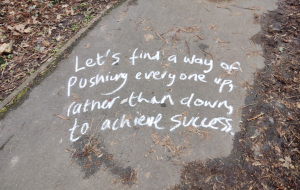 Let's find a way of
Pushing everyone up,
rather than down,
to achieve success.